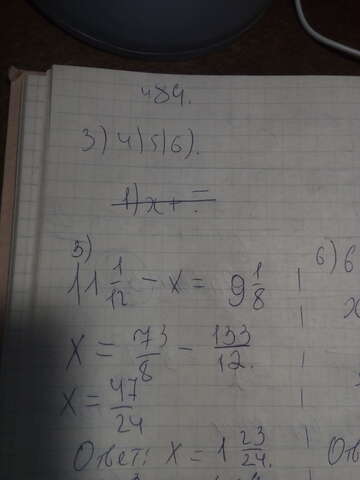 484.
3) 4) 5) 6).
1) x + = .
5)
11 1/12 - x = 9 1/8
x = 73/8 - 133/12.
x = 47/24
Ответ: x = 1 23/24.
6) 6
x
От